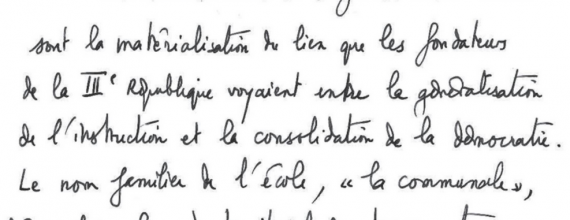 sont la matérialisation du lien que les fondateurs
de la IIIe République voyaient entre la généralisation
de l'instruction et la consolidation de la démocratie.
Le nom familier de l'école, « la communale »,